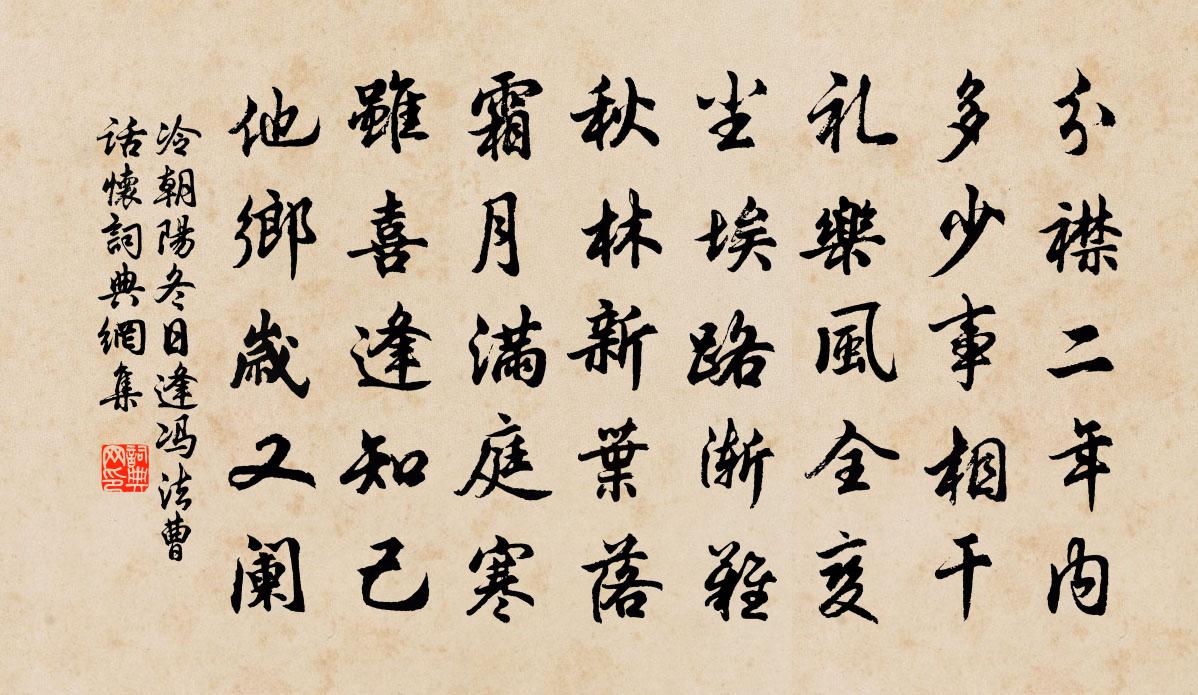 分襟二年内
多少事相干
礼樂風全变
尘埃路渐難
秋林新葉落
霜月满庭寒
雖喜逢知己
他鄉歲又阑
冷朝陽冬日逢冯法曹
话懷詞典網集
詞典网印